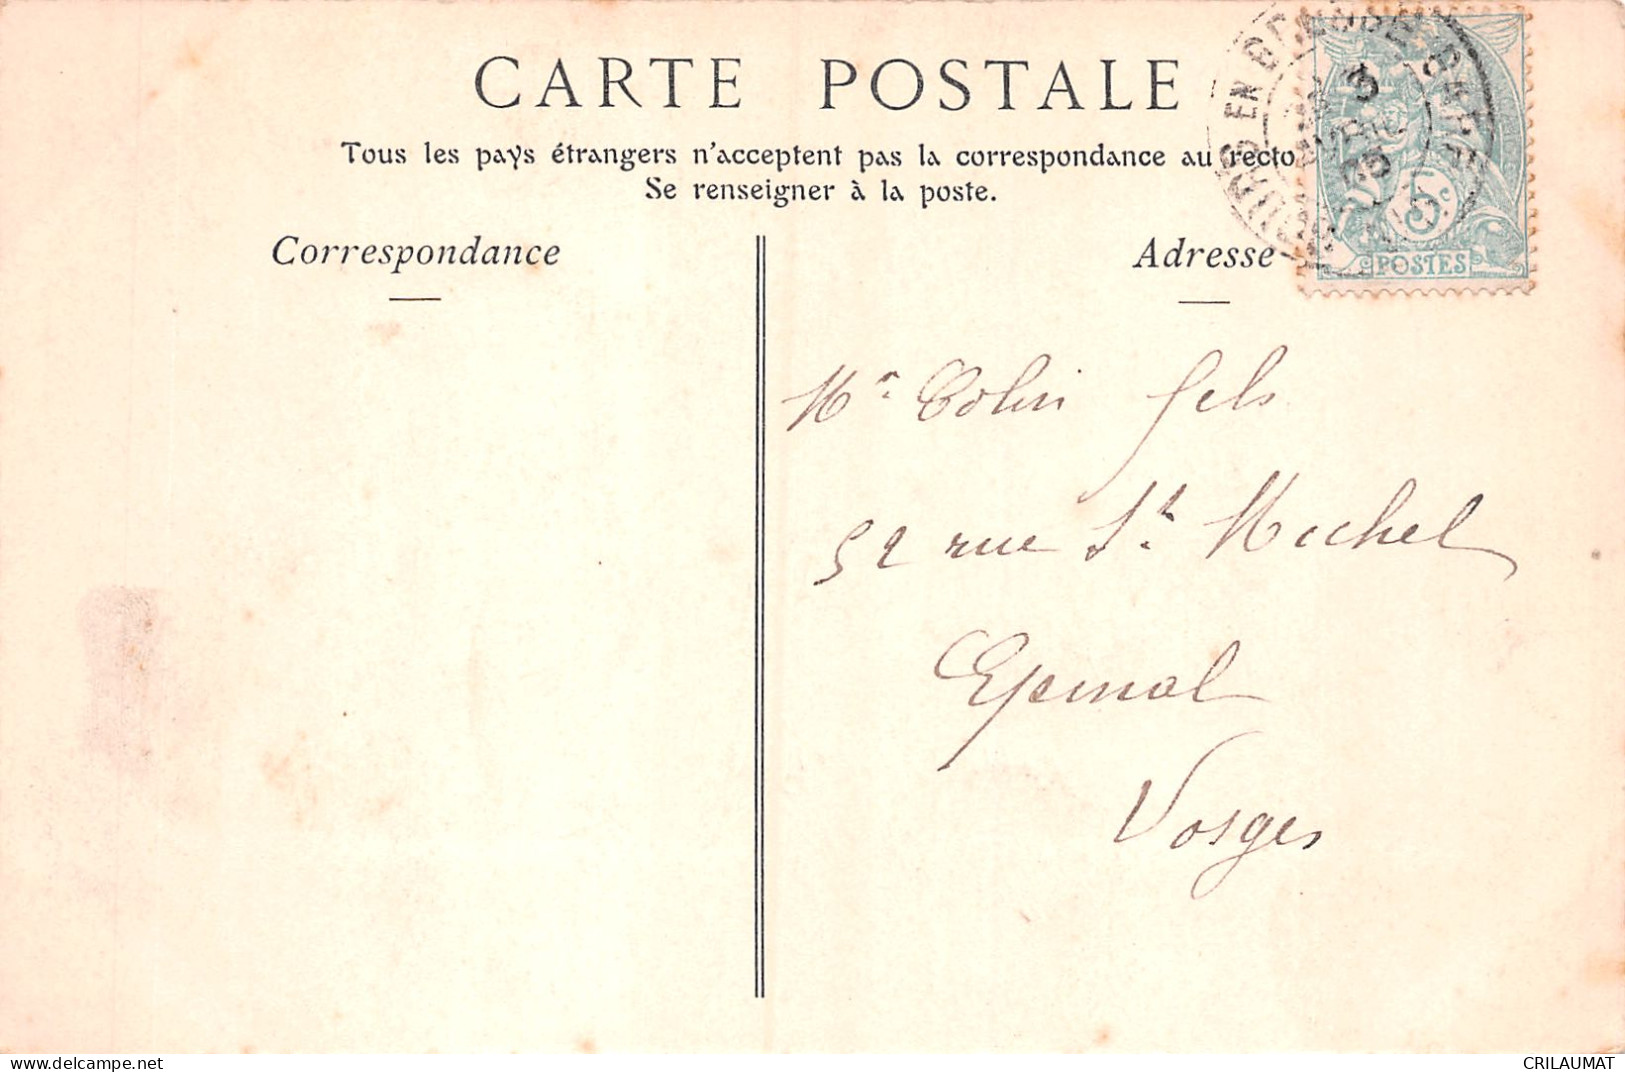 CARTE POSTALE
Tous les pays étrangers n'acceptent pas la correspondance au recto
Se renseigner à la poste.
Correspondance
Adresse
EN BEAUCE
3
05
5c
POSTES
Mr Colin fils
52 rue St. Michel
Epinal
Vosges
https://www.delcampe.net
CRILAUMAT